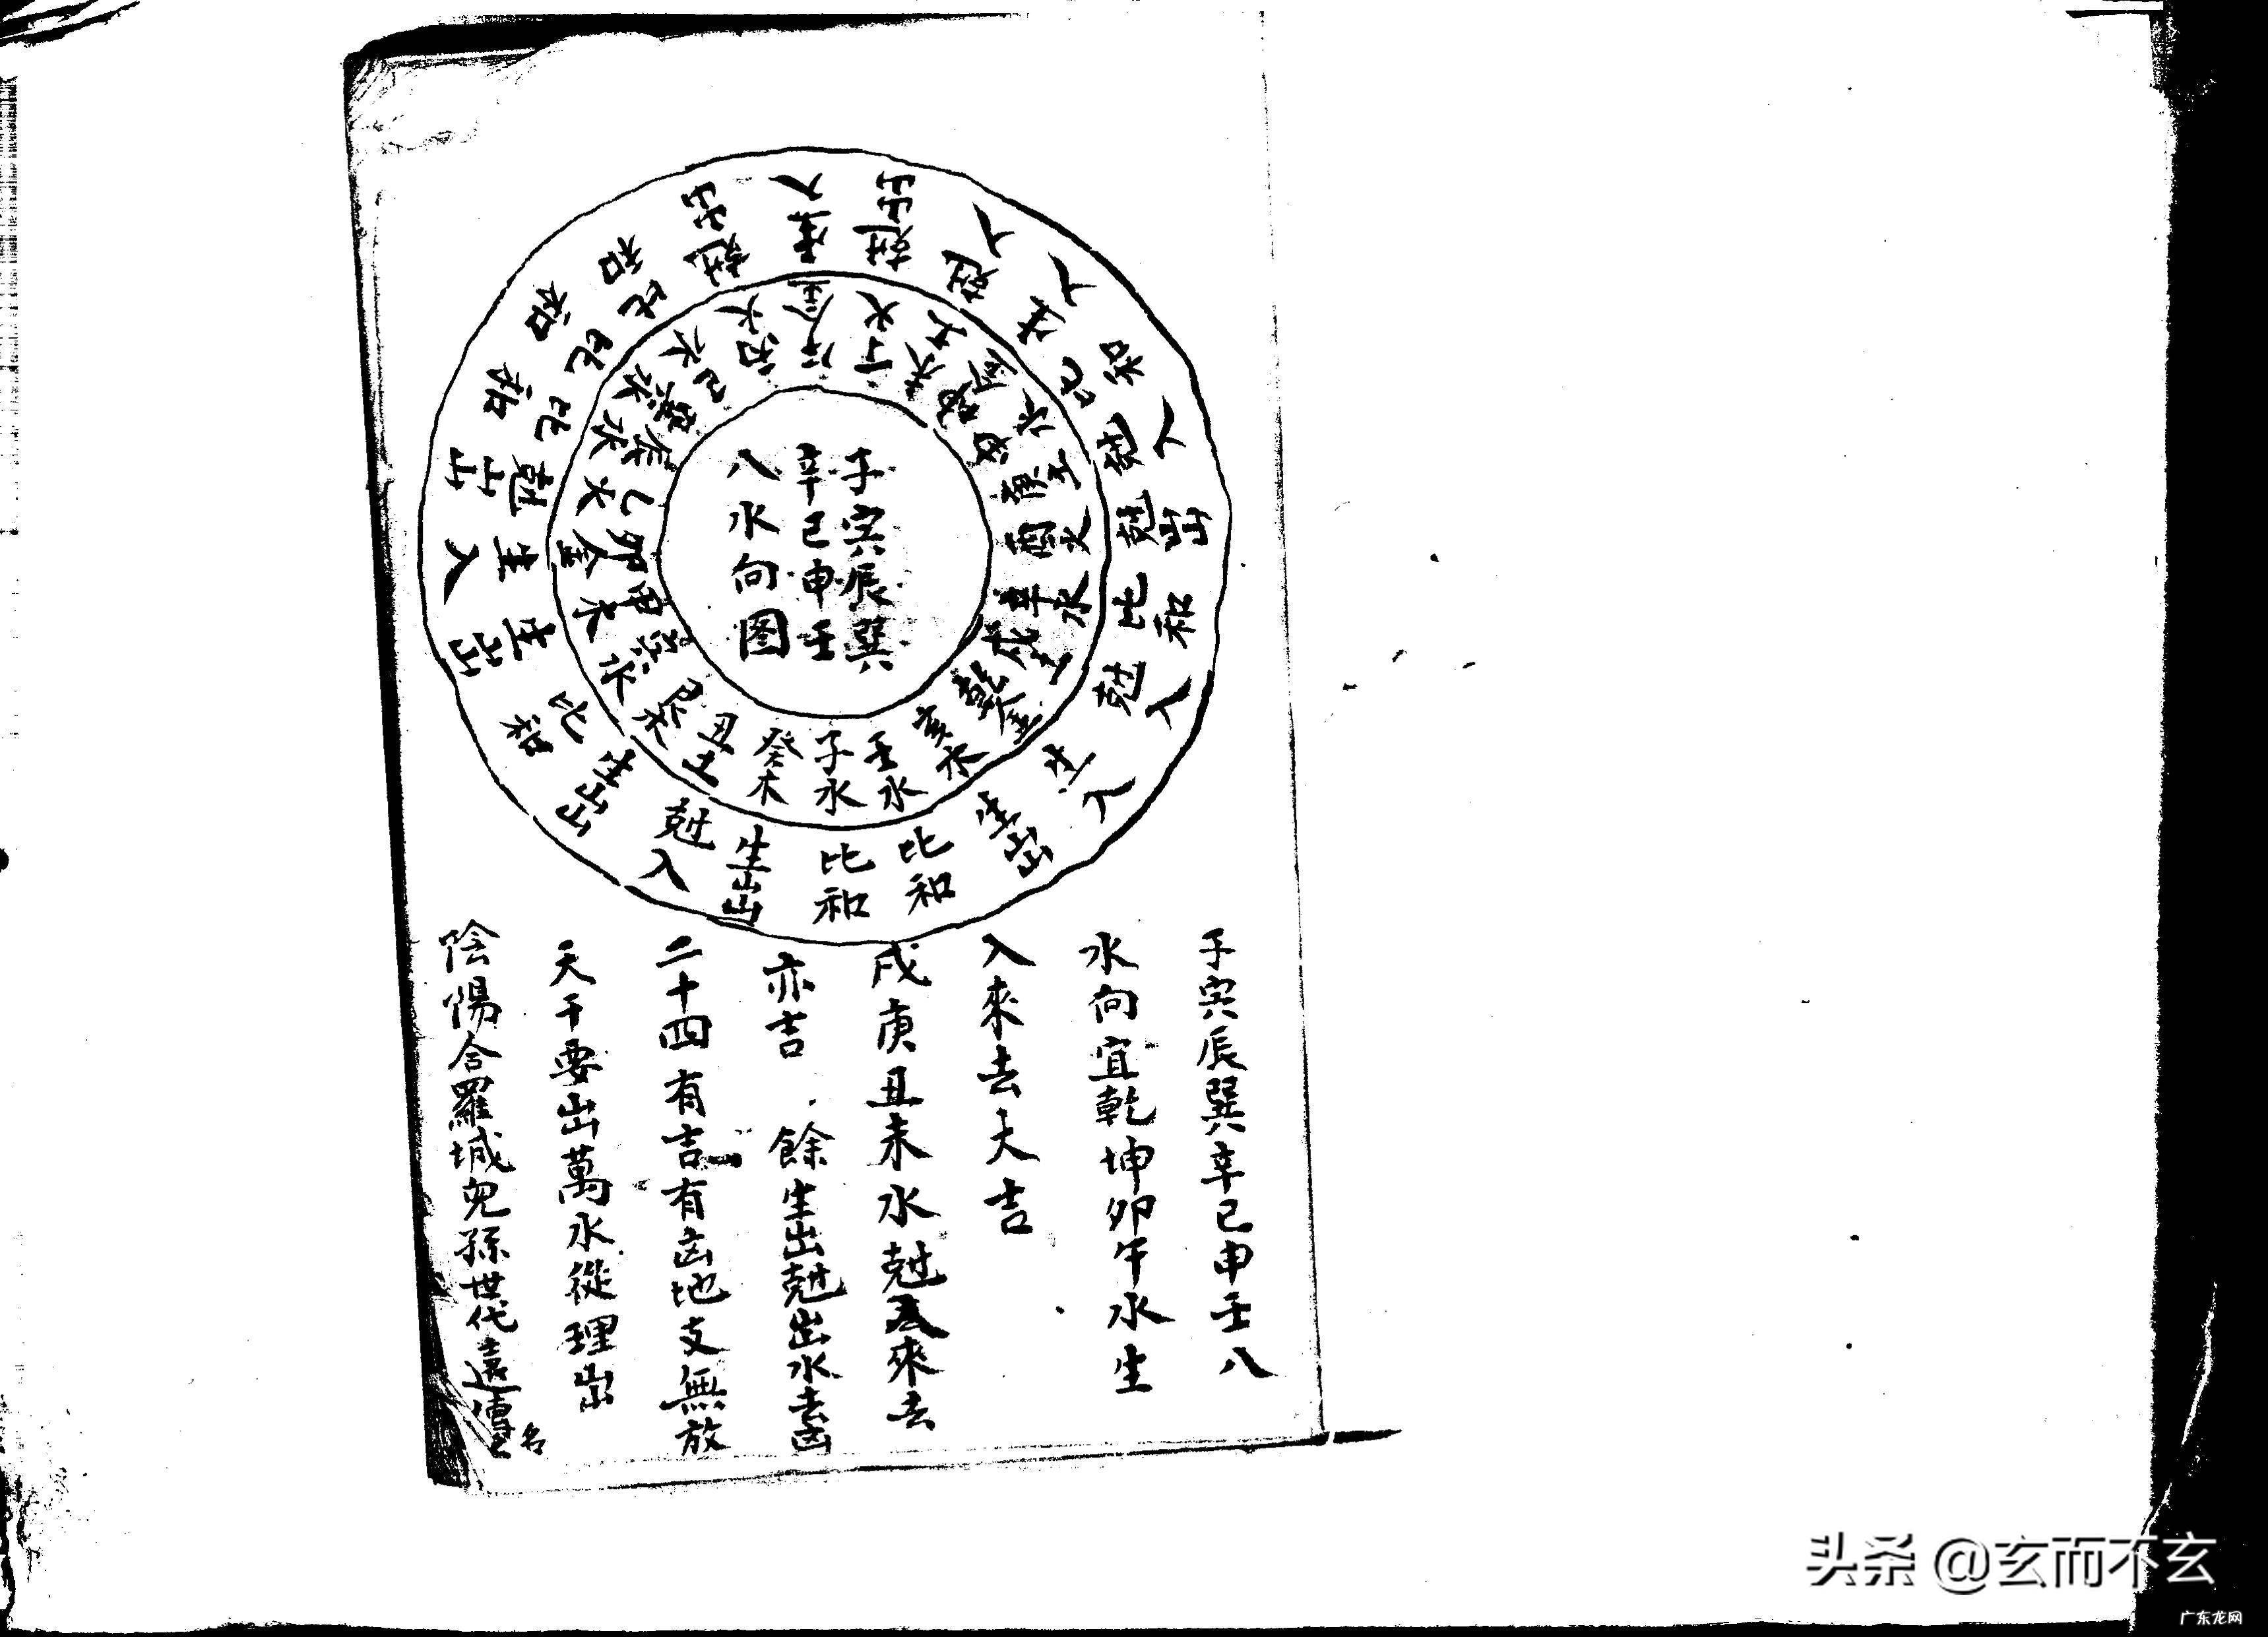 子寅辰巽
辛巳申壬
八水向图
子水
癸木
丑土
艮木
寅水
甲木
卯金
乙火
辰水
巽水
巳水
丙火
午金
丁火
未土
坤金
申水
庚土
酉火
辛水
戌土
乾金
亥木
壬水
比和
生出
尅入
生出
比和
生出
生入
尅出
比和
比和
比和
尅出
生入
尅出
尅入
生入
比和
尅入
尅出
比和
尅入
生入
生出
比和
子寅辰巽辛巳申壬八
水向宜乾坤卯午水生
入來去大吉
戌庚丑未水尅入來去
亦吉 餘生出尅出水去凶
二十四有吉有凶地支無放
天干要出萬水從理出
陰陽合羅城兒孫世代遠傳名
头条 @玄而不玄
广东龙网